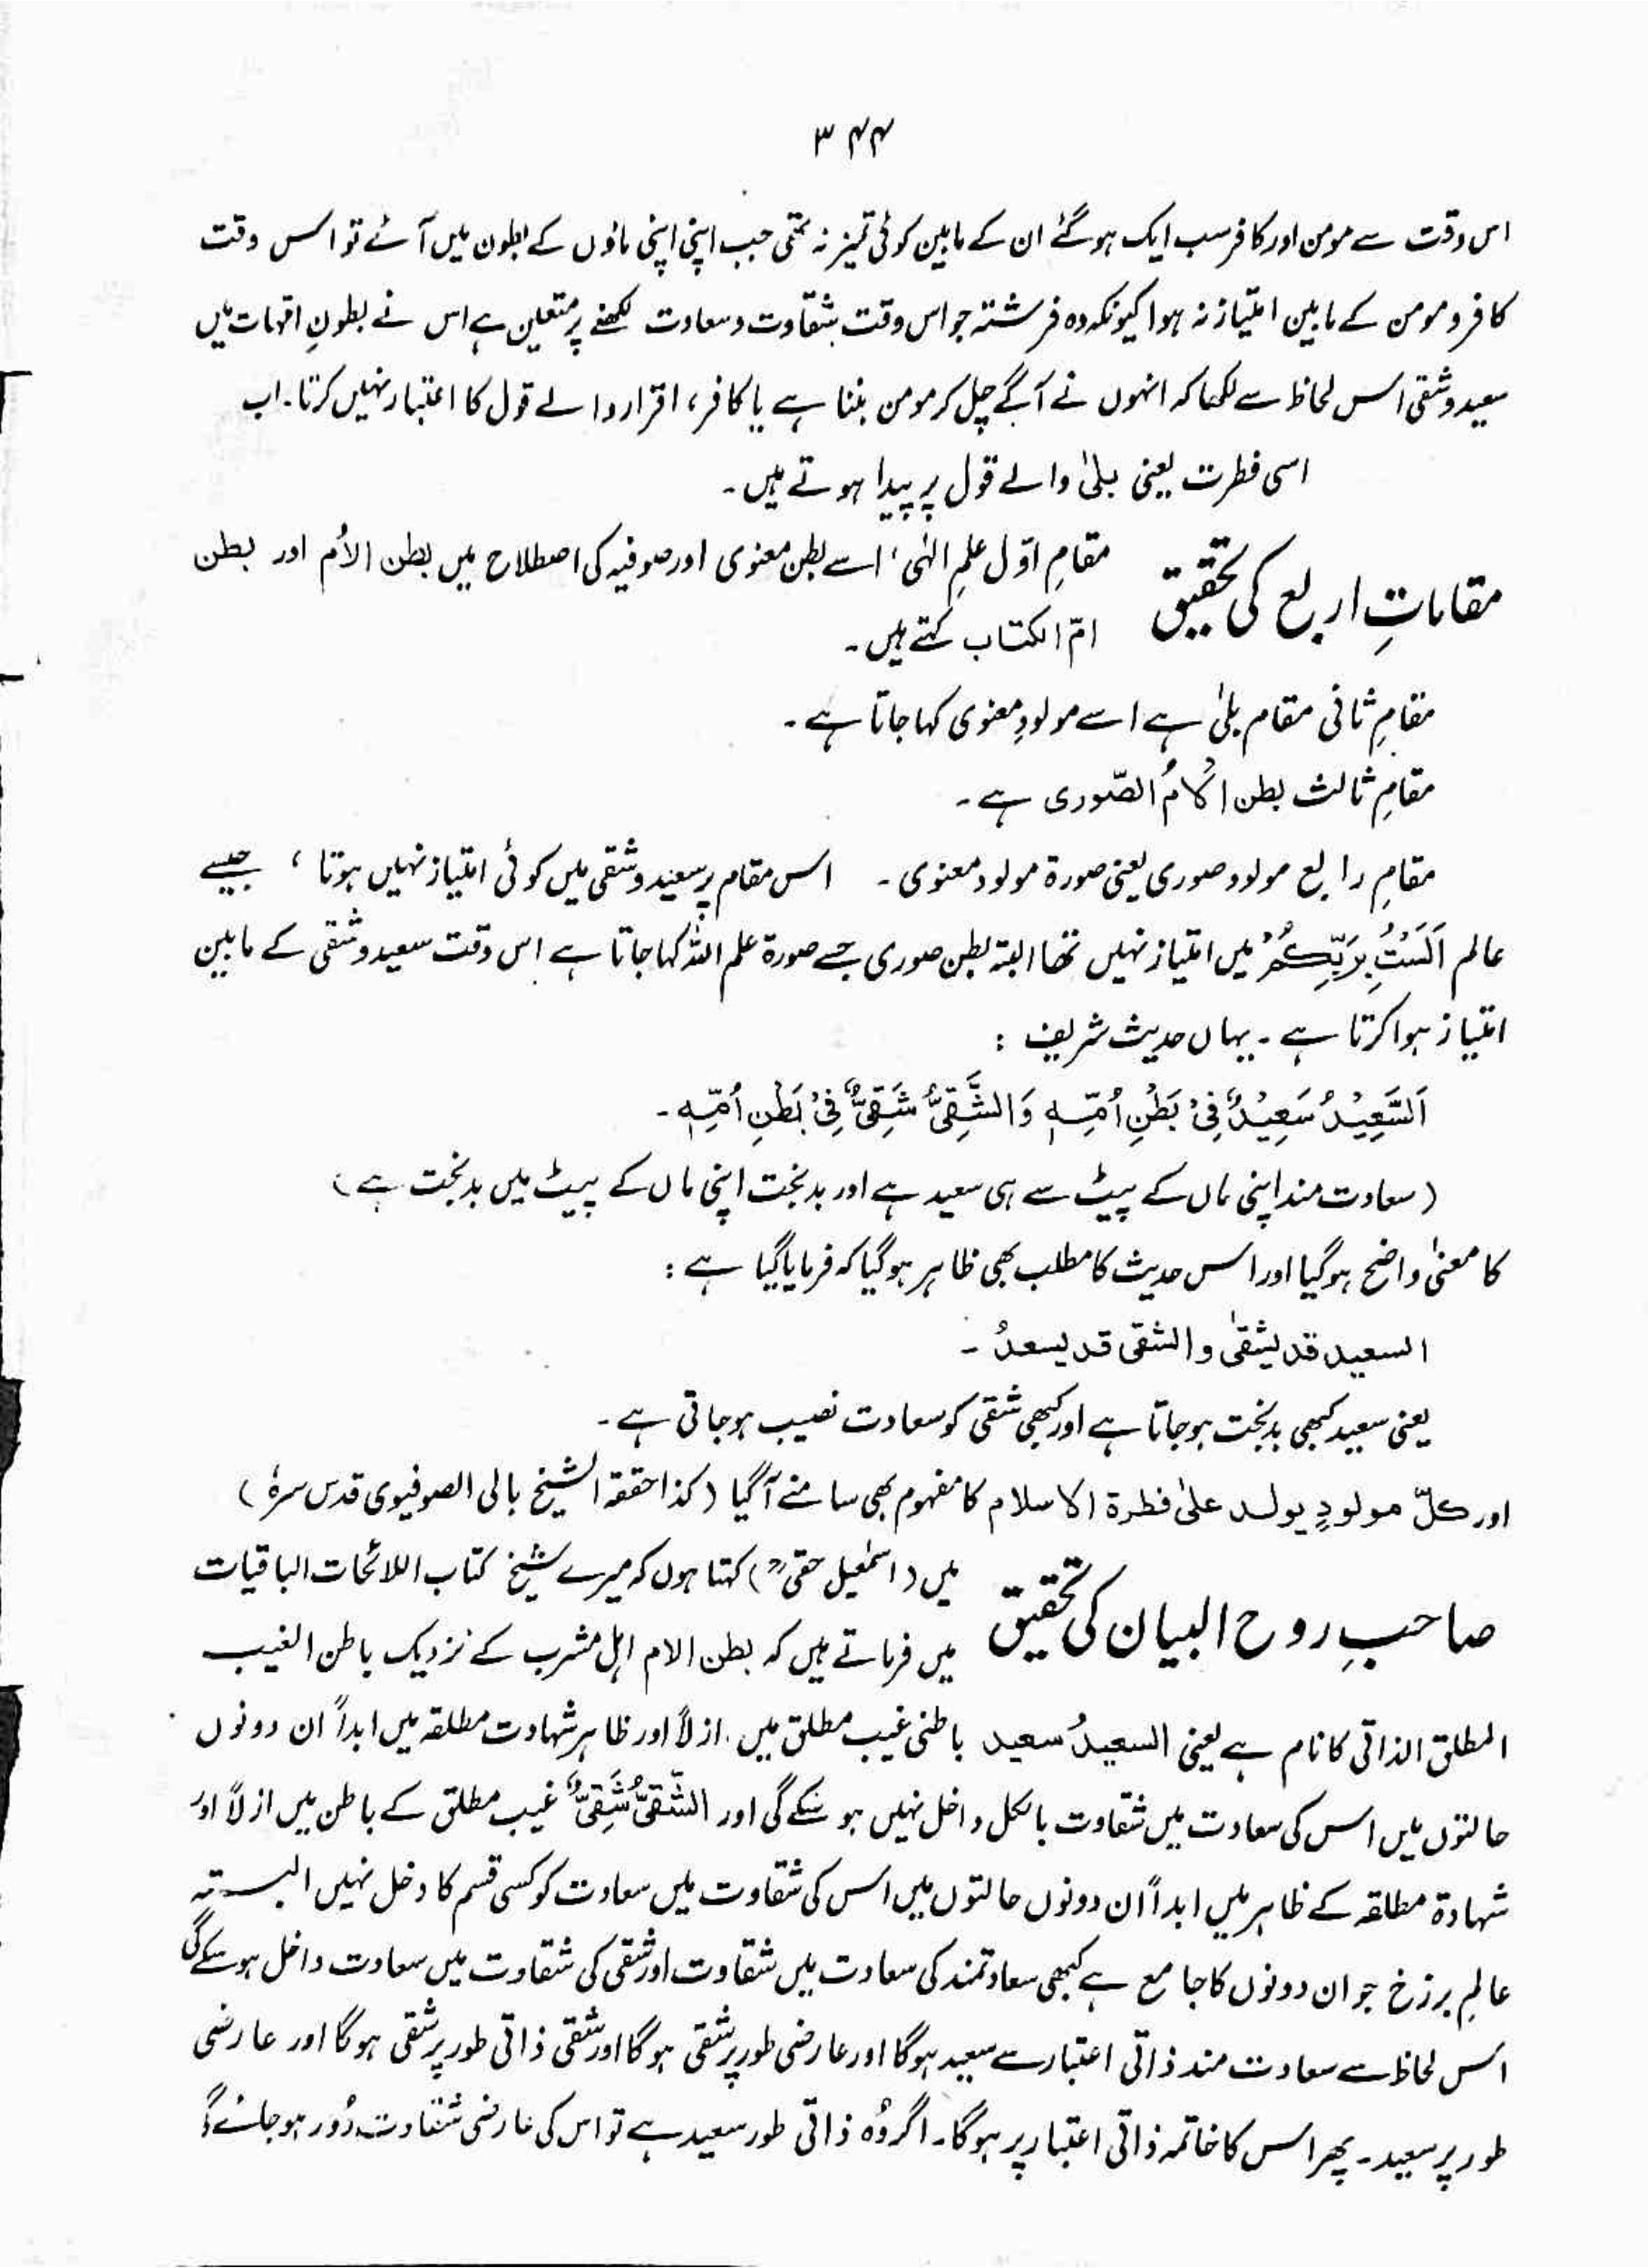 ۳۴۴
اس وقت سے مومن اور کافر سب ایک ہو گئے ان کے مابین کوئی تمیز نہ تھی جب اپنی اپنی ماؤں کے بطون میں آئے تو اس وقت
کافر و مومن کے مابین امتیاز نہ ہوا کیونکہ وہ فرشتہ جو اس وقت شقاوت و سعادت لکھنے پر متعین ہے اس نے بطونِ امّہات میں
سعید و شقی اس لحاظ سے لکھا کہ انہوں نے آگے چل کر مومن بننا ہے یا کافر، اقرار والے قول کا اعتبار نہیں کرتا۔ اب
اسی فطرت یعنی بلیٰ والے قول پر پیدا ہوتے ہیں۔
مقاماتِ اربع کی تحقیق
مقامِ اوّل علمِ الٰہی، اسے بطن معنوی اور صوفیہ کی اصطلاح میں بطن الأم اور بطن
امّ الکتاب کہتے ہیں۔
مقامِ ثانی مقام بلیٰ ہے اسے مولودِ معنوی کہا جاتا ہے۔
مقامِ ثالث بطن الامُ الصّوری ہے۔
مقامِ رابع مولود صوری یعنی صورۃ مولود معنوی۔ اس مقام پر سعید و شقی میں کوئی امتیاز نہیں ہوتا، جیسے
عالم اَلَسْتُ بِرَبِّكُمْ میں امتیاز نہیں تھا البتہ بطن صوری جسے صورۃ علم اللہ کہا جاتا ہے اس وقت سعید و شقی کے مابین
امتیاز ہوا کرتا ہے۔ یہاں حدیث شریف :
اَلسَّعِيْدُ سَعِيْدٌ فِىْ بَطْنِ اُمِّهٖ وَالشَّقِىُّ شَقِىٌّ فِىْ بَطْنِ اُمِّهٖ۔
(سعادت مند اپنی ماں کے پیٹ سے ہی سعید ہے اور بدبخت اپنی ماں کے پیٹ میں بدبخت ہے)
کا معنیٰ واضح ہو گیا اور اس حدیث کا مطلب بھی ظاہر ہو گیا کہ فرمایا گیا ہے :
السعید قد یشقیٰ والشقی قد یسعدُ۔
یعنی سعید کبھی بدبخت ہو جاتا ہے اور کبھی شقی کو سعادت نصیب ہو جاتی ہے۔
اور کلّ مولودٍ یولد علیٰ فطرۃ الاسلام کا مفہوم بھی سامنے آگیا (کذا حققہ الشیخ بالی الصوفیوی قدس سرہٗ)
صاحبِ روح البیان کی تحقیق
میں (اسمٰعیل حقیؒ) کہتا ہوں کہ میرے شیخ کتاب اللائحات الباقیات
میں فرماتے ہیں کہ بطن الام اہل مشرب کے نزدیک باطن الغیب
المطلق الذاتی کا نام ہے یعنی السعیدُ سعید باطنی غیب مطلق میں ازلاً اور ظاہر شہادت مطلقہ میں ابداً ان دونوں
حالتوں میں اس کی سعادت میں شقاوت بالکل داخل نہیں ہو سکے گی اور الشّقیُّ شَقِیٌّ غیب مطلق کے باطن میں ازلاً اور
شہادۃ مطلقہ کے ظاہر میں ابداً ان دونوں حالتوں میں اس کی شقاوت میں سعادت کو کسی قسم کا دخل نہیں البتہ
عالمِ برزخ جو ان دونوں کا جامع ہے کبھی سعادتمند کی سعادت میں شقاوت اور شقی کی شقاوت میں سعادت داخل ہو سکے گی
اس لحاظ سے سعادت مند ذاتی اعتبار سے سعید ہوگا اور عارضی طور پر شقی ہوگا اور شقی ذاتی طور پر شقی ہوگا اور عارضی
طور پر سعید۔ پھر اس کا خاتمہ ذاتی اعتبار پر ہوگا۔ اگر وُہ ذاتی طور سعید ہے تو اس کی عارضی شقاوت دُور ہو جائے گی